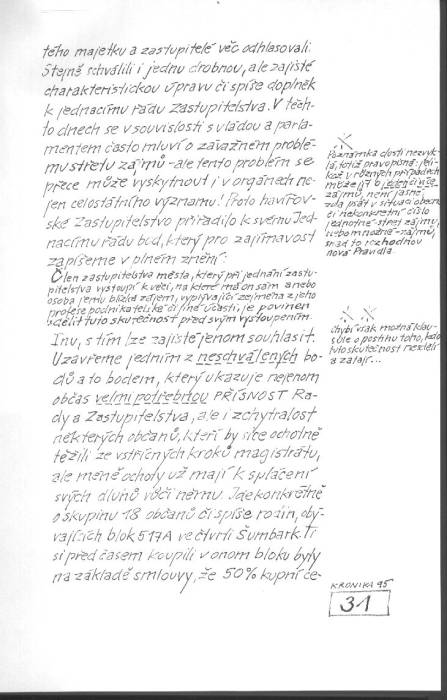 tého majetku a zastupitelé věc odhlasovali.
Stejně schválili i jednu drobnou, ale zajisté
charakteristickou úpravu či spíše doplněk
k jednacímu řádu Zastupitelstva. V těch-
to dnech se v souvislosti s vládou a parla-
mentem často mluví o závažném problé-
mu střetu zájmů - ale tento problém se
přece může vyskytnout i v orgánech ne-
jen celostátního významu! Proto havířov-
ské Zastupitelstvo přiřadilo k svému Jed-
nacímu řádu bod, který pro zajímavost
zapíšeme v plném znění:
Člen zastupitelstva města, který při jednání zastu-
pitelstva vystoupí k věci, na které má on sám anebo
osoba jemu blízká zájem, vyplývající zejména z jeho
profese podnikatelské či jiné účasti, je povinen
sdělit tuto skutečnost před svým vystoupením.
Inu, s tím lze zajisté jenom souhlasit.
Uzavřeme jedním z neschválených bo-
dů a to bodem, který ukazuje nejenom
občas velmi potřebnou PŘÍSNOST Ra-
dy a Zastupitelstva, ale i zchytralost
některých občanů, kteří by sice ochotně
těžili ze vstřícných kroků magistrátu,
ale méně ochoty už mají k splácení
svých dluhů vůči němu. Jde konkrétně
o skupinu 18 občanů či spíše rodin, obý-
vajících blok 517A ve čtvrti Šumbark. Ti
si před časem koupili v onom bloku byty
na základě smlouvy, že 50% kupní ce-
Poznámka dosti nezvyk-
lá, totiž pravopisná: jeli-
kož v různých případech
může jít o jeden či více
zájmů, není jasné,
zda psát v situaci obecné
či nekonkrétní číslo
jednotné - střet zájmu,
nebo množné - zájmů,
snad to rozhodnou
nová Pravidla.
Chybí však možná klau-
sule o postihu toho, kdo
tuto skutečnost nesdělí
a zatají...
KRONIKA 95
31